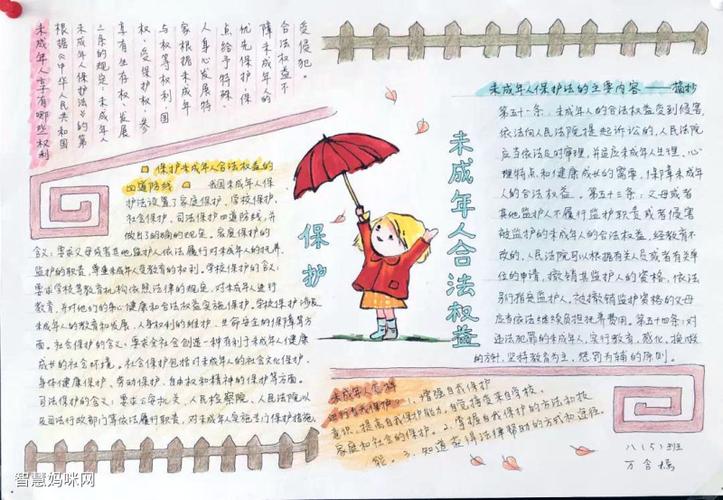 未成年人享有哪些权利
根据《中华人民共和国
未成年人保护法》的第
三条的规定:未成年人
享有生存权、发展
权、受保护权、参
与权等权利,国
家根据未成年
人身心发展特
点给予特殊、
优先保护,保
障未成年人的
合法权益不
受侵犯。
保护
未成年人合法权益
保护未成年人合法权益的
四道防线
我国未成年人保
护法设置了家庭保护、学校保护、
社会保护、司法保护四道防线,并
做出了明确的规定。家庭保护的
含义:要求父母或者其他监护人依法履行对未成年人的抚养、
监护的职责,尊重未成年人受教育的权利。学校保护的含义:
要求学校等教育机构依照法律的规定,对未成年人进行
教育,并对他们的身心健康和合法权益实施保护。学校保护涉及
未成年人的教育和发展、人身权利的维护、生命安全的保障等方
面。社会保护的含义:要求全社会创造一种有利于未成年人健康
成长的社会环境。社会保护包括对未成年人的社会文化保护、
身体健康保护、劳动保护、自由权和精神的保护等方面。
司法保护的含义:要求公安机关、人民检察院、人民法院以
及司法行政部门等依法履行职责,对未成年人实施专门保护措施。
未成年人保护法的主要内容——摘抄
第五十一条:未成年人的合法权益受到侵害,
依法向人民法院提起诉讼的,人民法院
应当依法及时审理,并适应未成年人生理、心
理特点和健康成长的需要,保障未成年
人的合法权益。第五十三条:父母或者
其他监护人不履行监护职责或者侵害
被监护的未成年人的合法权益,经教育不
改的,人民法院可以根据有关人员或者有关单
位的申请,撤销其监护人的资格,依法
另行指定监护人。被撤销监护资格的父母
应当依法继续负担抚养费用。第五十四条:对
违法犯罪的未成年人,实行教育、感化、挽救
的方针,坚持教育为主、惩罚为辅的原则。
未成年人怎样
进行自我保护
1、增强自我保护
意识,提高自我保护能力,自觉接受来自学校、
家庭和社会的保护。2、掌握自我保护的方法和技
能。3、知道获得法律帮助的方式和途径。
八(5)班
万含
智慧妈咪网